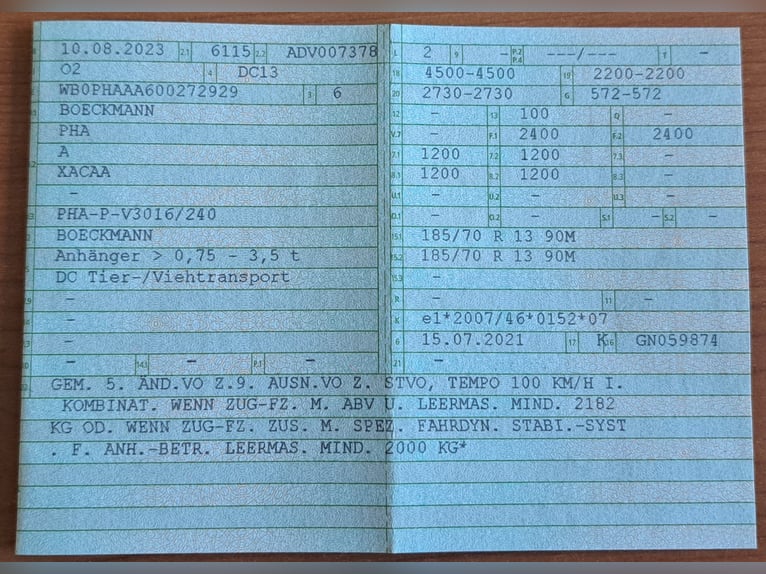 10.08.2023 2.1 6115 2.2 ADV007378
02 4 DC13
WB0PHAAA600272929 3 6
BOECKMANN
PHA
A
XACAA
-
PHA-P-V3016/240
BOECKMANN
Anhänger > 0,75 - 3,5 t
DC Tier-/Viehtransport
-
-
-
- 14.1 - P.1 -
L 2 9 - P.2 P.4 ---/--- T -
18 4500-4500 19 2200-2200
20 2730-2730 G 572-572
12 - 13 100 Q -
V.7 - F.1 2400 F.2 2400
7.1 1200 7.2 1200 7.3 -
8.1 1200 8.2 1200 8.3 -
U.1 - U.2 - U.3 -
O.1 - O.2 - S.1 - S.2 -
15.1 185/70 R 13 90M
15.2 185/70 R 13 90M
15.3 -
R - 11 -
K e1*2007/46*0152*07
6 15.07.2021 17 K 16 GN059874
21 -
GEM. 5. ÄND.VO Z.9. AUSN.VO Z. STVO, TEMPO 100 KM/H I.
KOMBINAT. WENN ZUG-FZ. M. ABV U. LEERMAS. MIND. 2182
KG OD. WENN ZUG-FZ. ZUS. M. SPEZ. FAHRDYN. STABI.-SYST
. F. ANH.-BETR. LEERMAS. MIND. 2000 KG*